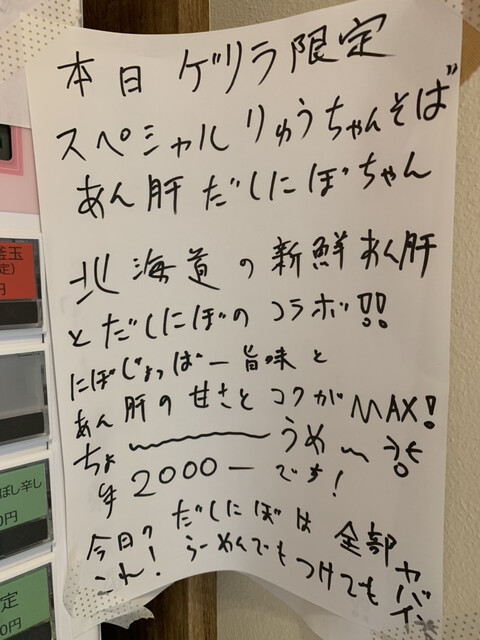 本日 ゲリラ限定
スペシャルりゅうちゃんそば
あん肝だしにぼちゃん
北海道の新鮮あん肝
とだしにぼのコラボ!!
にぼじょっぱー旨味と
あん肝の甘さとコクがMAX!
ちょ〜うめ〜
¥2000ーです!
今日? だしにぼは全部
これ! らーめんでもつけてもヤバイ
釜玉
定)
円
ほし辛し
0円
定
0円